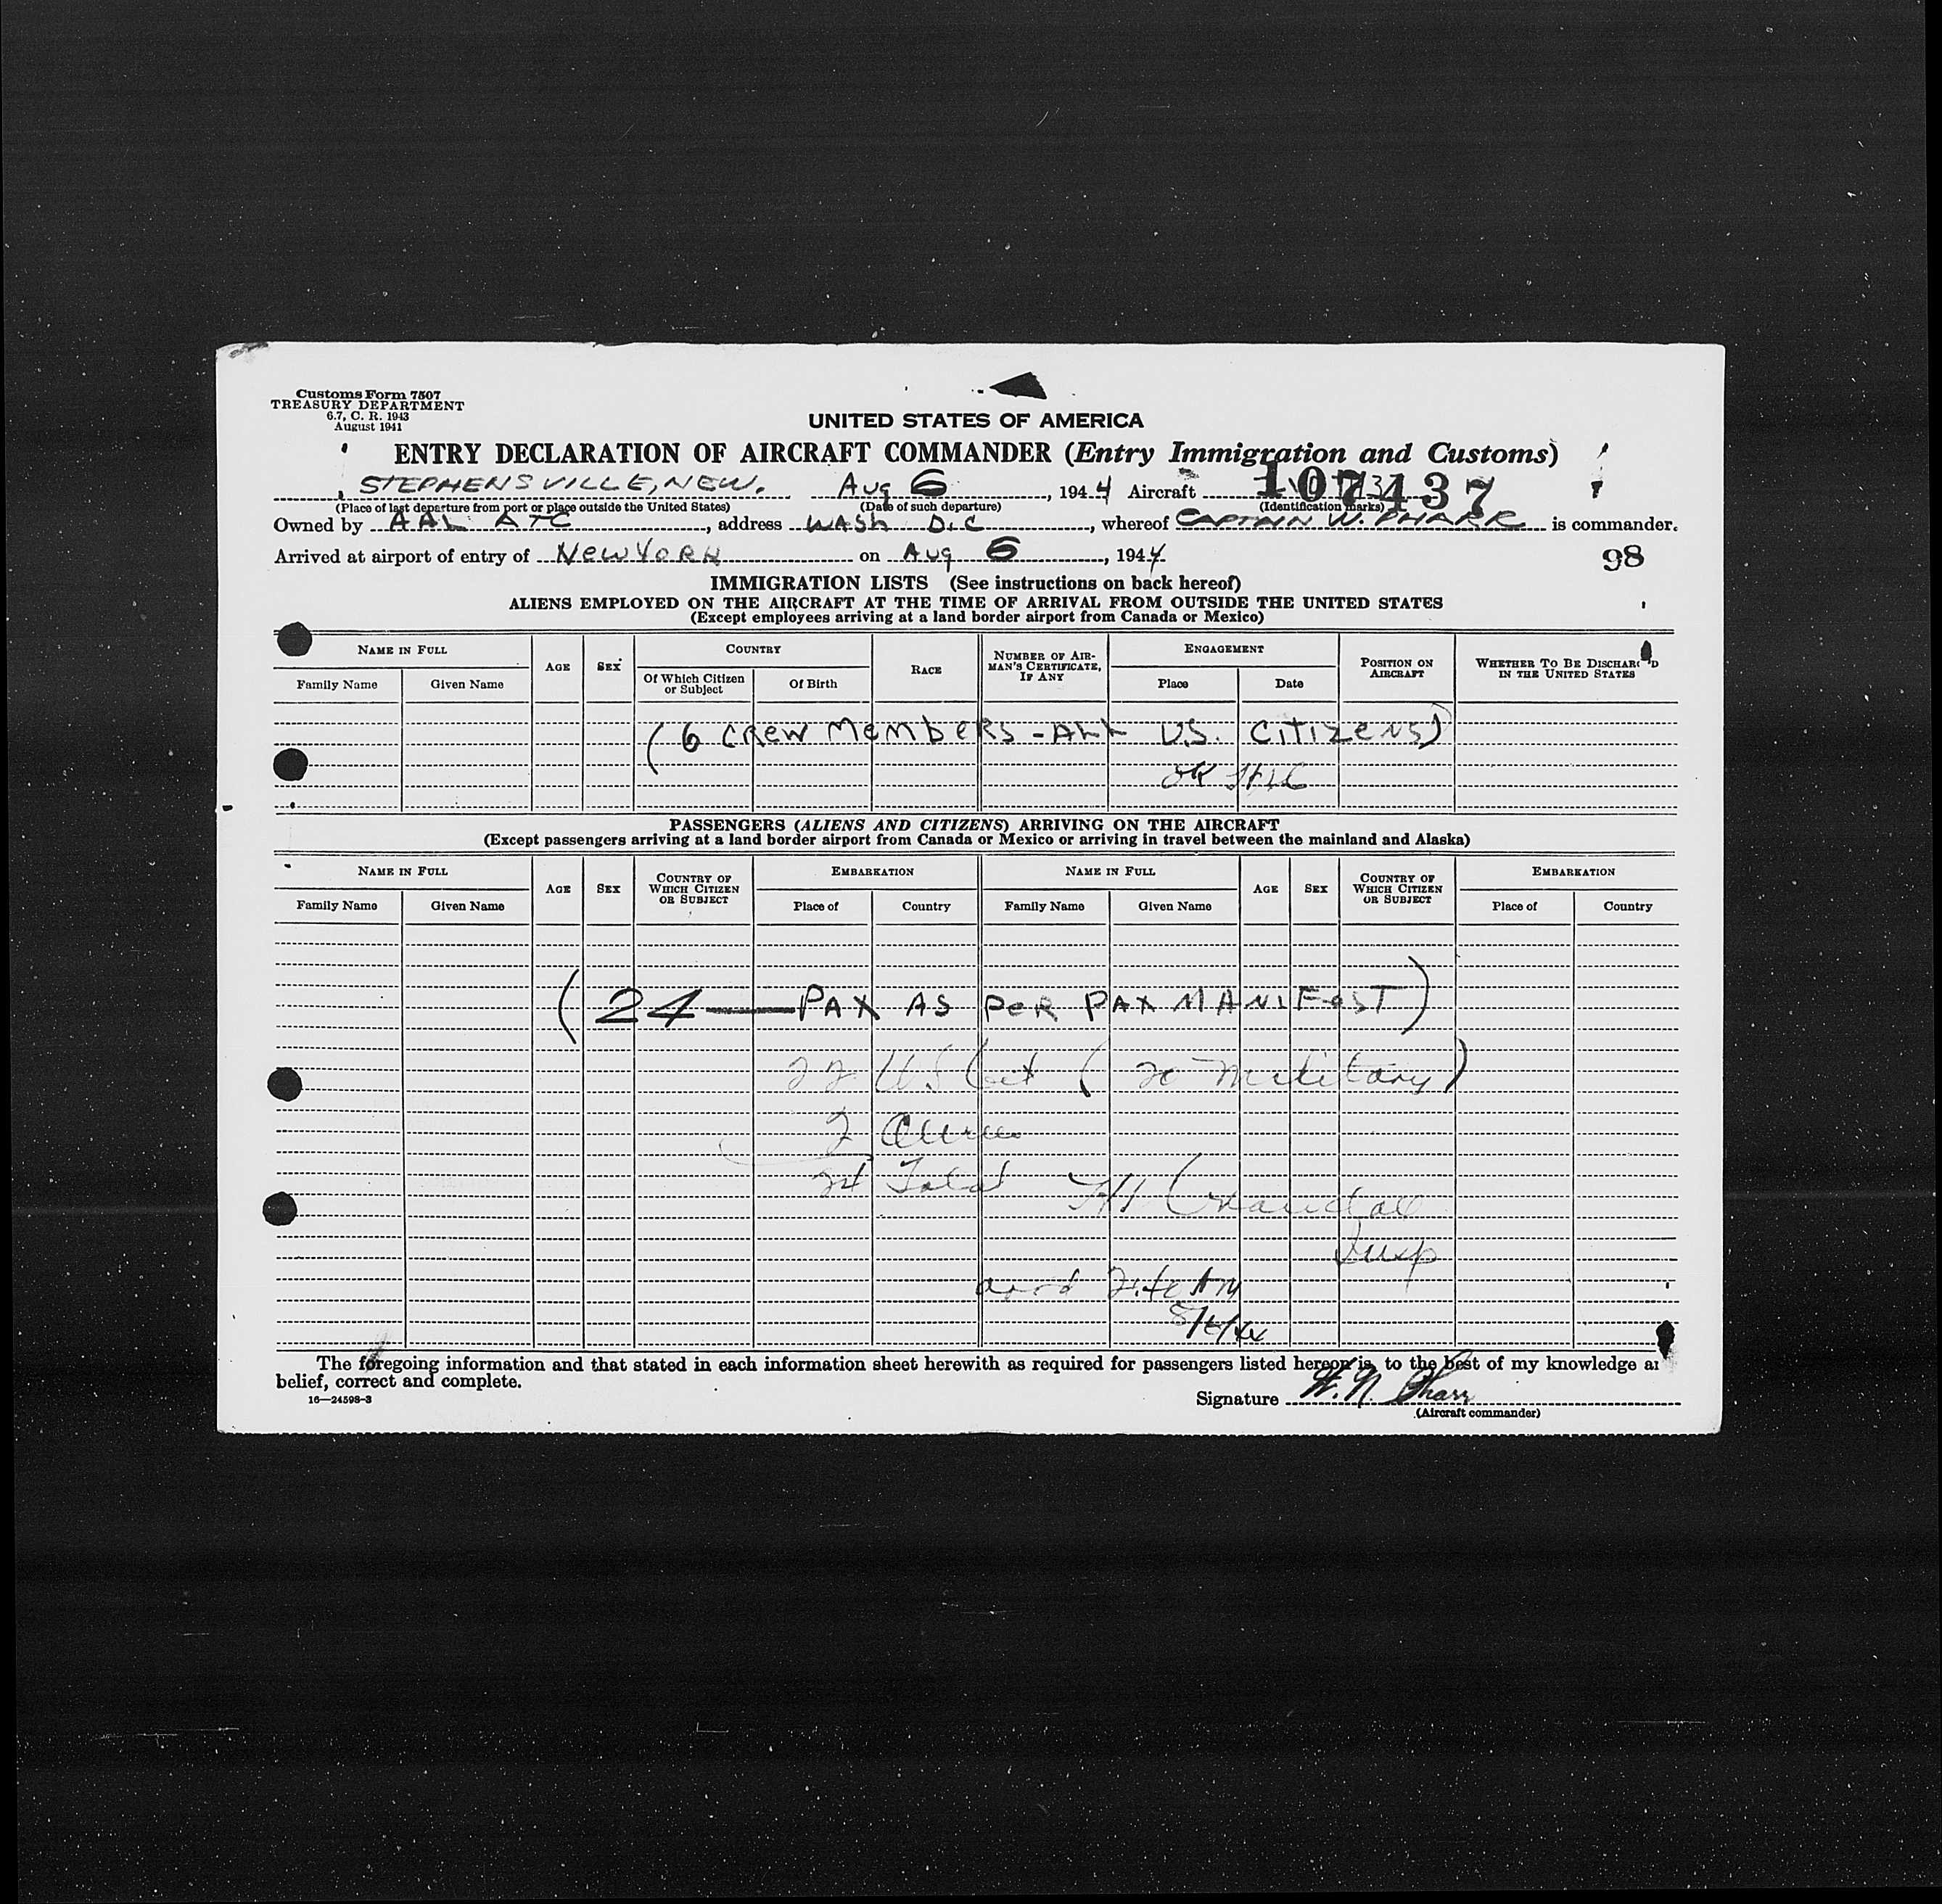 Customs Form 7507
TREASURY DEPARTMENT
6.7, C. R. 1943
August 1941
UNITED STATES OF AMERICA
ENTRY DECLARATION OF AIRCRAFT COMMANDER (Entry Immigration and Customs)
STEPHENSVILLE, NEW. Aug 6, 1944 Aircraft 107437
(Place of last departure from port or place outside the United States) (Date of such departure) (Identification marks)
Owned by AAL ATC, address WASH D.C, whereof CAPTAIN W. PHARR is commander.
Arrived at airport of entry of NEW YORK on Aug 6, 1944
98
IMMIGRATION LISTS (See instructions on back hereof)
ALIENS EMPLOYED ON THE AIRCRAFT AT THE TIME OF ARRIVAL FROM OUTSIDE THE UNITED STATES
(Except employees arriving at a land border airport from Canada or Mexico)
NAME IN FULL AGE SEX COUNTRY RACE NUMBER OF AIRMAN'S CERTIFICATE, IF ANY ENGAGEMENT POSITION ON AIRCRAFT WHETHER TO BE DISCHARGED IN THE UNITED STATES
Family Name Given Name Of Which Citizen or Subject Of Birth Place Date
(6 CREW MEMBERS - ALL U.S. CITIZENS)
OK
PASSENGERS (ALIENS AND CITIZENS) ARRIVING ON THE AIRCRAFT
(Except passengers arriving at a land border airport from Canada or Mexico or arriving in travel between the mainland and Alaska)
NAME IN FULL AGE SEX COUNTRY OF WHICH CITIZEN OR SUBJECT EMBARKATION NAME IN FULL AGE SEX COUNTRY OF WHICH CITIZEN OR SUBJECT EMBARKATION
Family Name Given Name Place of Country Family Name Given Name Place of Country
(24 — PAX AS PER PAX MANIFEST)
22 US Cit (20 Military)
2 Aliens
24 Total
Insp
arrd 2:40 AM
8/6/44
The foregoing information and that stated in each information sheet herewith as required for passengers listed hereon is, to the best of my knowledge and
belief, correct and complete.
16—24598-3
Signature W. N. Pharr
(Aircraft commander)